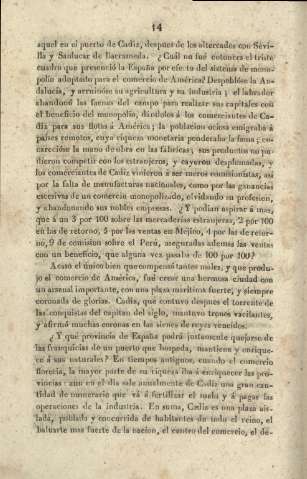 14
aquel en el puerto de Cadiz, despues de los altercados con Sevi-
lla y Sanlucar de Barrameda. ¿Cuál no fué entonces el triste
cuadro que presenció la España por efecto del sistema de mono-
polio adoptado para el comercio de América? Despoblóse la An-
dalucía, y arruinóse su agricultura y su industria; el labrador
abandonó las faenas del campo para realizar sus capitales con
el beneficio del monopolio, dándolos á los comerciantes de Ca-
diz para sus flotas á América; la poblacion ociosa emigraba á
paises remotos, cuya riqueza monetaria ponderaba la fama; en-
carecióse la mano de obra en las fábricas; sus productos no pu-
dieron competir con los extranjeros, y cayeron desplomadas, y
los comerciantes de Cadiz vinieron á ser meros comisionistas, asi
por la falta de manufacturas nacionales, como por las ganancias
excesivas de un comercio monopolizado, olvidando su profesion,
y abandonando sus nobles empresas. ¿Y podian aspirar á mas,
que á un 3 por 100 sobre las mercaderías estranjeras, 2 por 100
en las de retorno, 5 por las ventas en Méjico, 4 por las de retor-
no, 9 de comision sobre el Perú, aseguradas ademas las ventas
con un beneficio, que alguna vez pasaba de 100 por 100?
Acaso el único bien que compensó tantos males, y que produ-
jo el comercio de América, fué crear una hermosa ciudad con
un arsenal importante, con una plaza marítima fuerte, y siempre
coronada de glorias. Cadiz, que contuvo despues el torrente de
las conquistas del capitan del siglo, mantuvo tronos vacilantes,
y afirmó muchas coronas en las sienes de reyes vencidos.
¿Y qué provincia de España podrá justamente quejarse de
las franquicias de un puerto que hospeda, mantiene y enrique-
ce á sus naturales? En tiempos antiguos, cuando el comercio
florecia, la mayor parte de su riqueza iba á enriquecer las pro-
vincias: aun en el dia sale anualmente de Cadiz una gran can-
tidad de numerario que vá á fertilizar el suelo y á pagar las
operaciones de la industria. En suma, Cadiz es una plaza ais-
lada, poblada y concurrida de habitantes de todo el reino, el
baluarte mas fuerte de la nacion, el centro del comercio, el de-